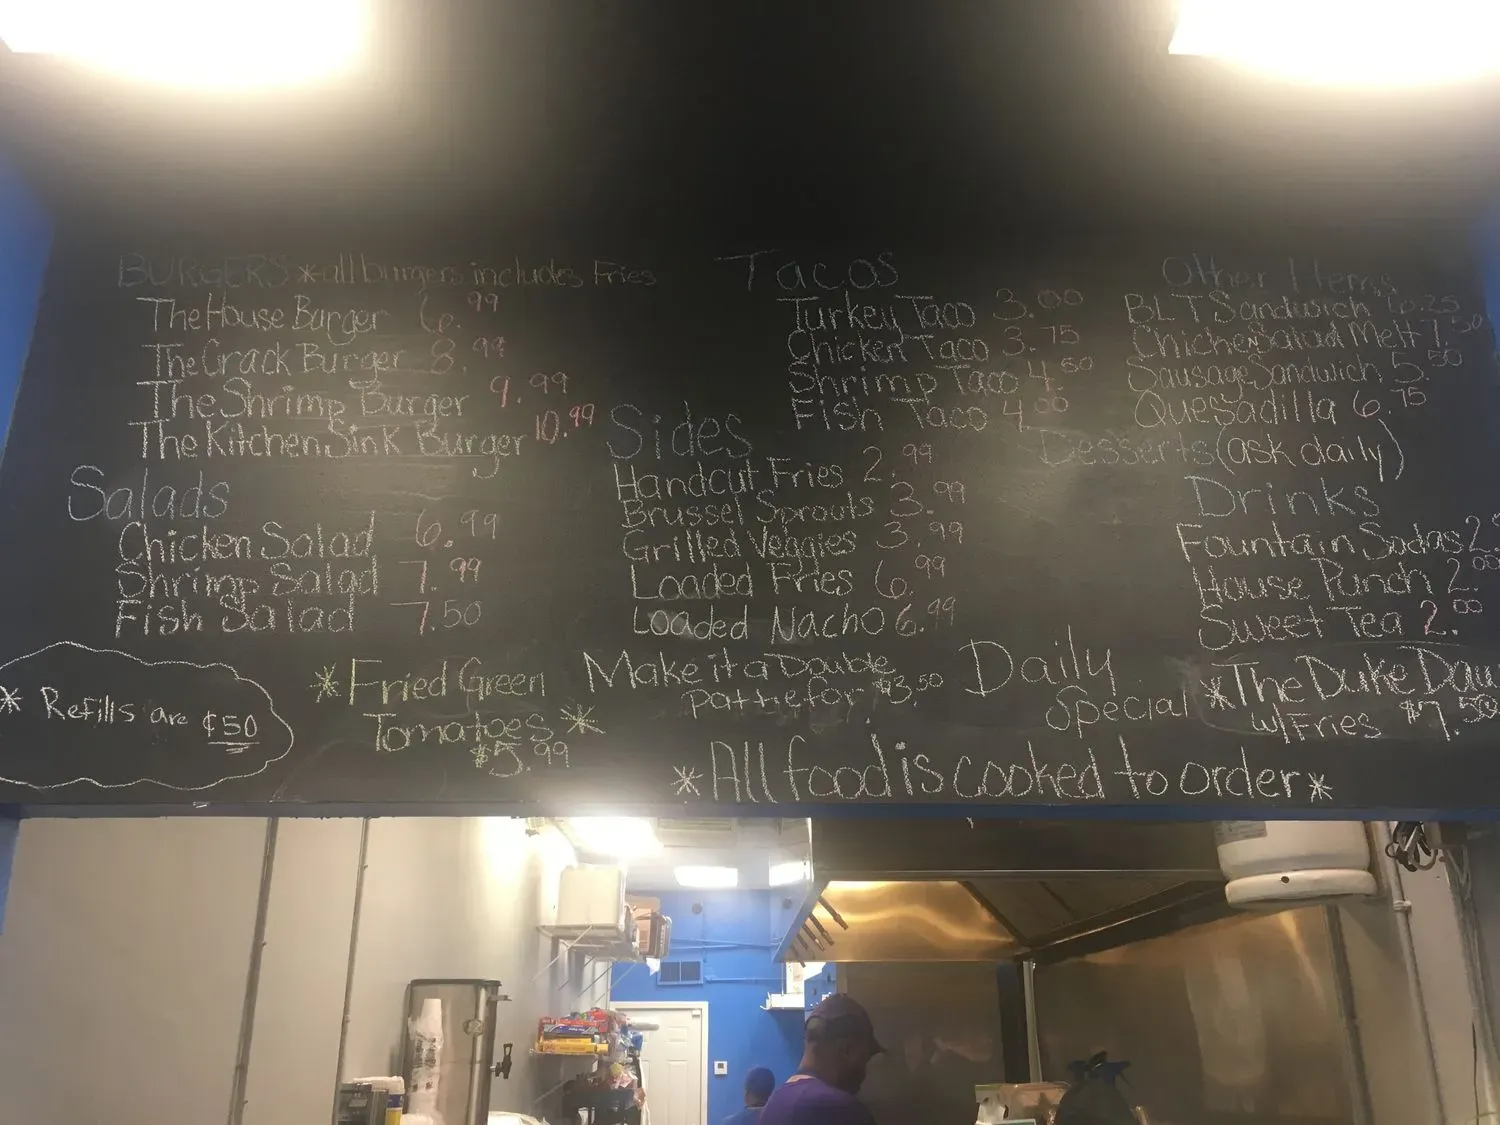 BURGERS *all burgers includes Fries
The House Burger 6.99
The Crack Burger 8.99
The Shrimp Burger 9.99
The Kitchen Sink Burger 10.99
Salads
Chicken Salad 6.99
Shrimp Salad 7.99
Fish Salad 7.50
* Refills are ¢50
*Fried Green
Tomatoes*
$5.99
Tacos
Turkey Taco 3.00
Chicken Taco 3.75
Shrimp Taco 4.50
Fish Taco 4.00
Sides
Handcut Fries 2.99
Brussel Sprouts 3.99
Grilled Veggies 3.99
Loaded Fries 6.99
Loaded Nacho 6.99
Make it a Double
Pattie for $3.50
Other Items
BLT Sandwich 6.25
Chicken Salad Melt 7.50
Sausage Sandwich 5.50
Quesadilla 6.75
Desserts (ask daily)
Drinks
Fountain Sodas 2.
House Punch 2.00
Sweet Tea 2.00
Daily
Special *The Duke Daw
w/Fries $7.50
*All food is cooked to order*